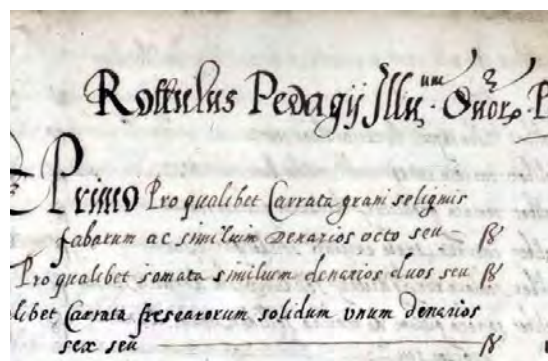 Rottulus Pedagij Illu. um Dnor. P
Primo Pro qualibet Carrata grani seliginis
fabarum ac similium denarios octo seu ß
Pro qualibet somata similium denarios duos seu ß
libet Carrata frescarorum solidum unum denarios
sex seu ß